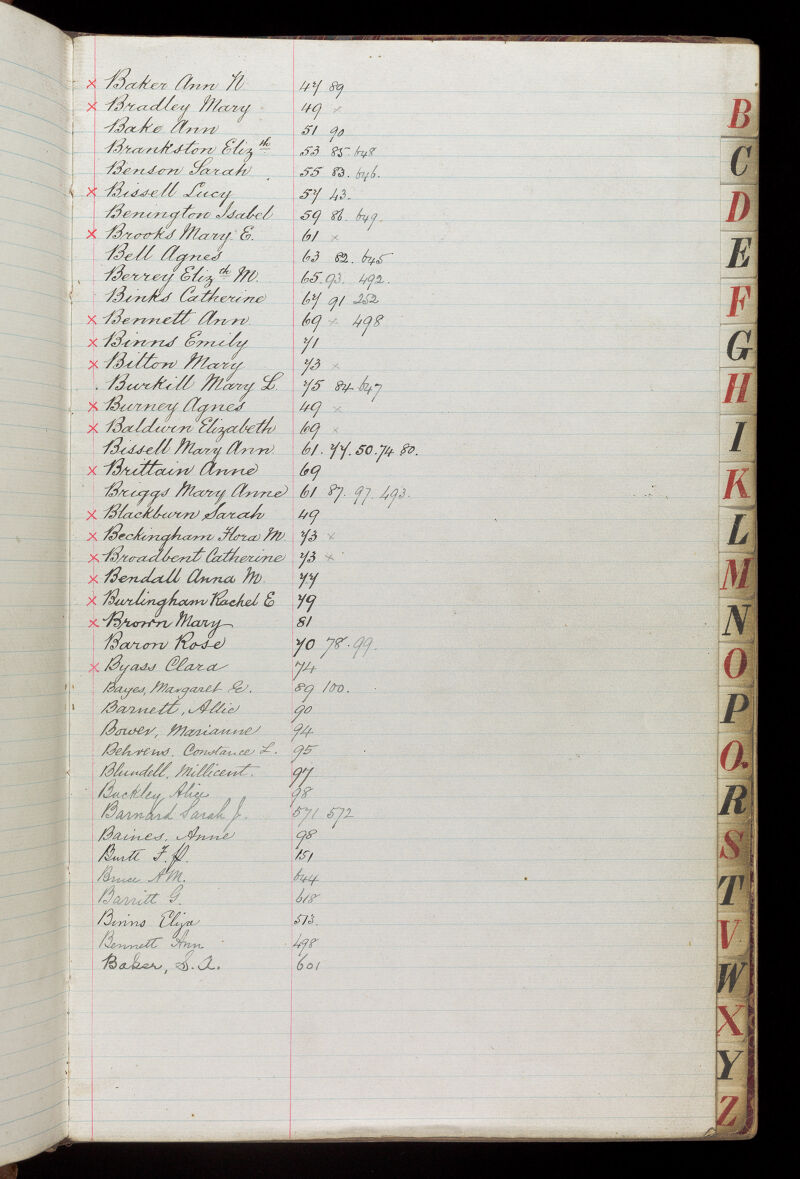 × Baker Ann N 47 89
× Bradley Mary 49 ×
Bake Ann 51 90
Brankston Eliz th 53 85. 648
Benson Sarah 55 83. 646.
× Bissell Lucy 57 43.
Benington Isabel 59 86. 649.
× Brooks Mary E. 61 ×
Bell Agnes 63 82. 645
Berrey Eliz th M. 65. 93. 492.
Binks Catherine 67 91 252
× Bennett Ann 69 × 498
× Binns Emily 71
× Bitton Mary 73 ×
Burkill Mary L. 75 84. 647
× Burney Agnes 49 ×
× Baldwin Elizabeth 69 ×
Bissell Mary Ann 61. 77. 50. 74 80.
× Brittain Anne 69
Briggs Mary Anne 61 87. 97. 493.
× Blackburn Sarah 49
× Beckingham Flora M 73 ×
× Broadbent Catherine 73 ×
× Bendall Anna M. 77
× Burlingham Rachel E 79
× Brown Mary 81
Baron Rose 70 78. 99.
× Byass Clara 74
Bayes, Margaret E. 89 100.
Barnett, Allie 90
Bower, Marianne 94
Behrens, Constance L. 95
Blundell, Millicent. 97
Buckley Alice 98
Barnard Sarah J. 571 572
Baines, Anne 98
Burtt F. 151
Bruce A M. 644
Barritt G. 618
Binns Eliza 513.
Bennett Ann 498
Baker, S. A. 601
B
C
D
E
F
G
H
I
K
L
M
N
O
P
Q.
R
S
T
V
W
X
Y
Z